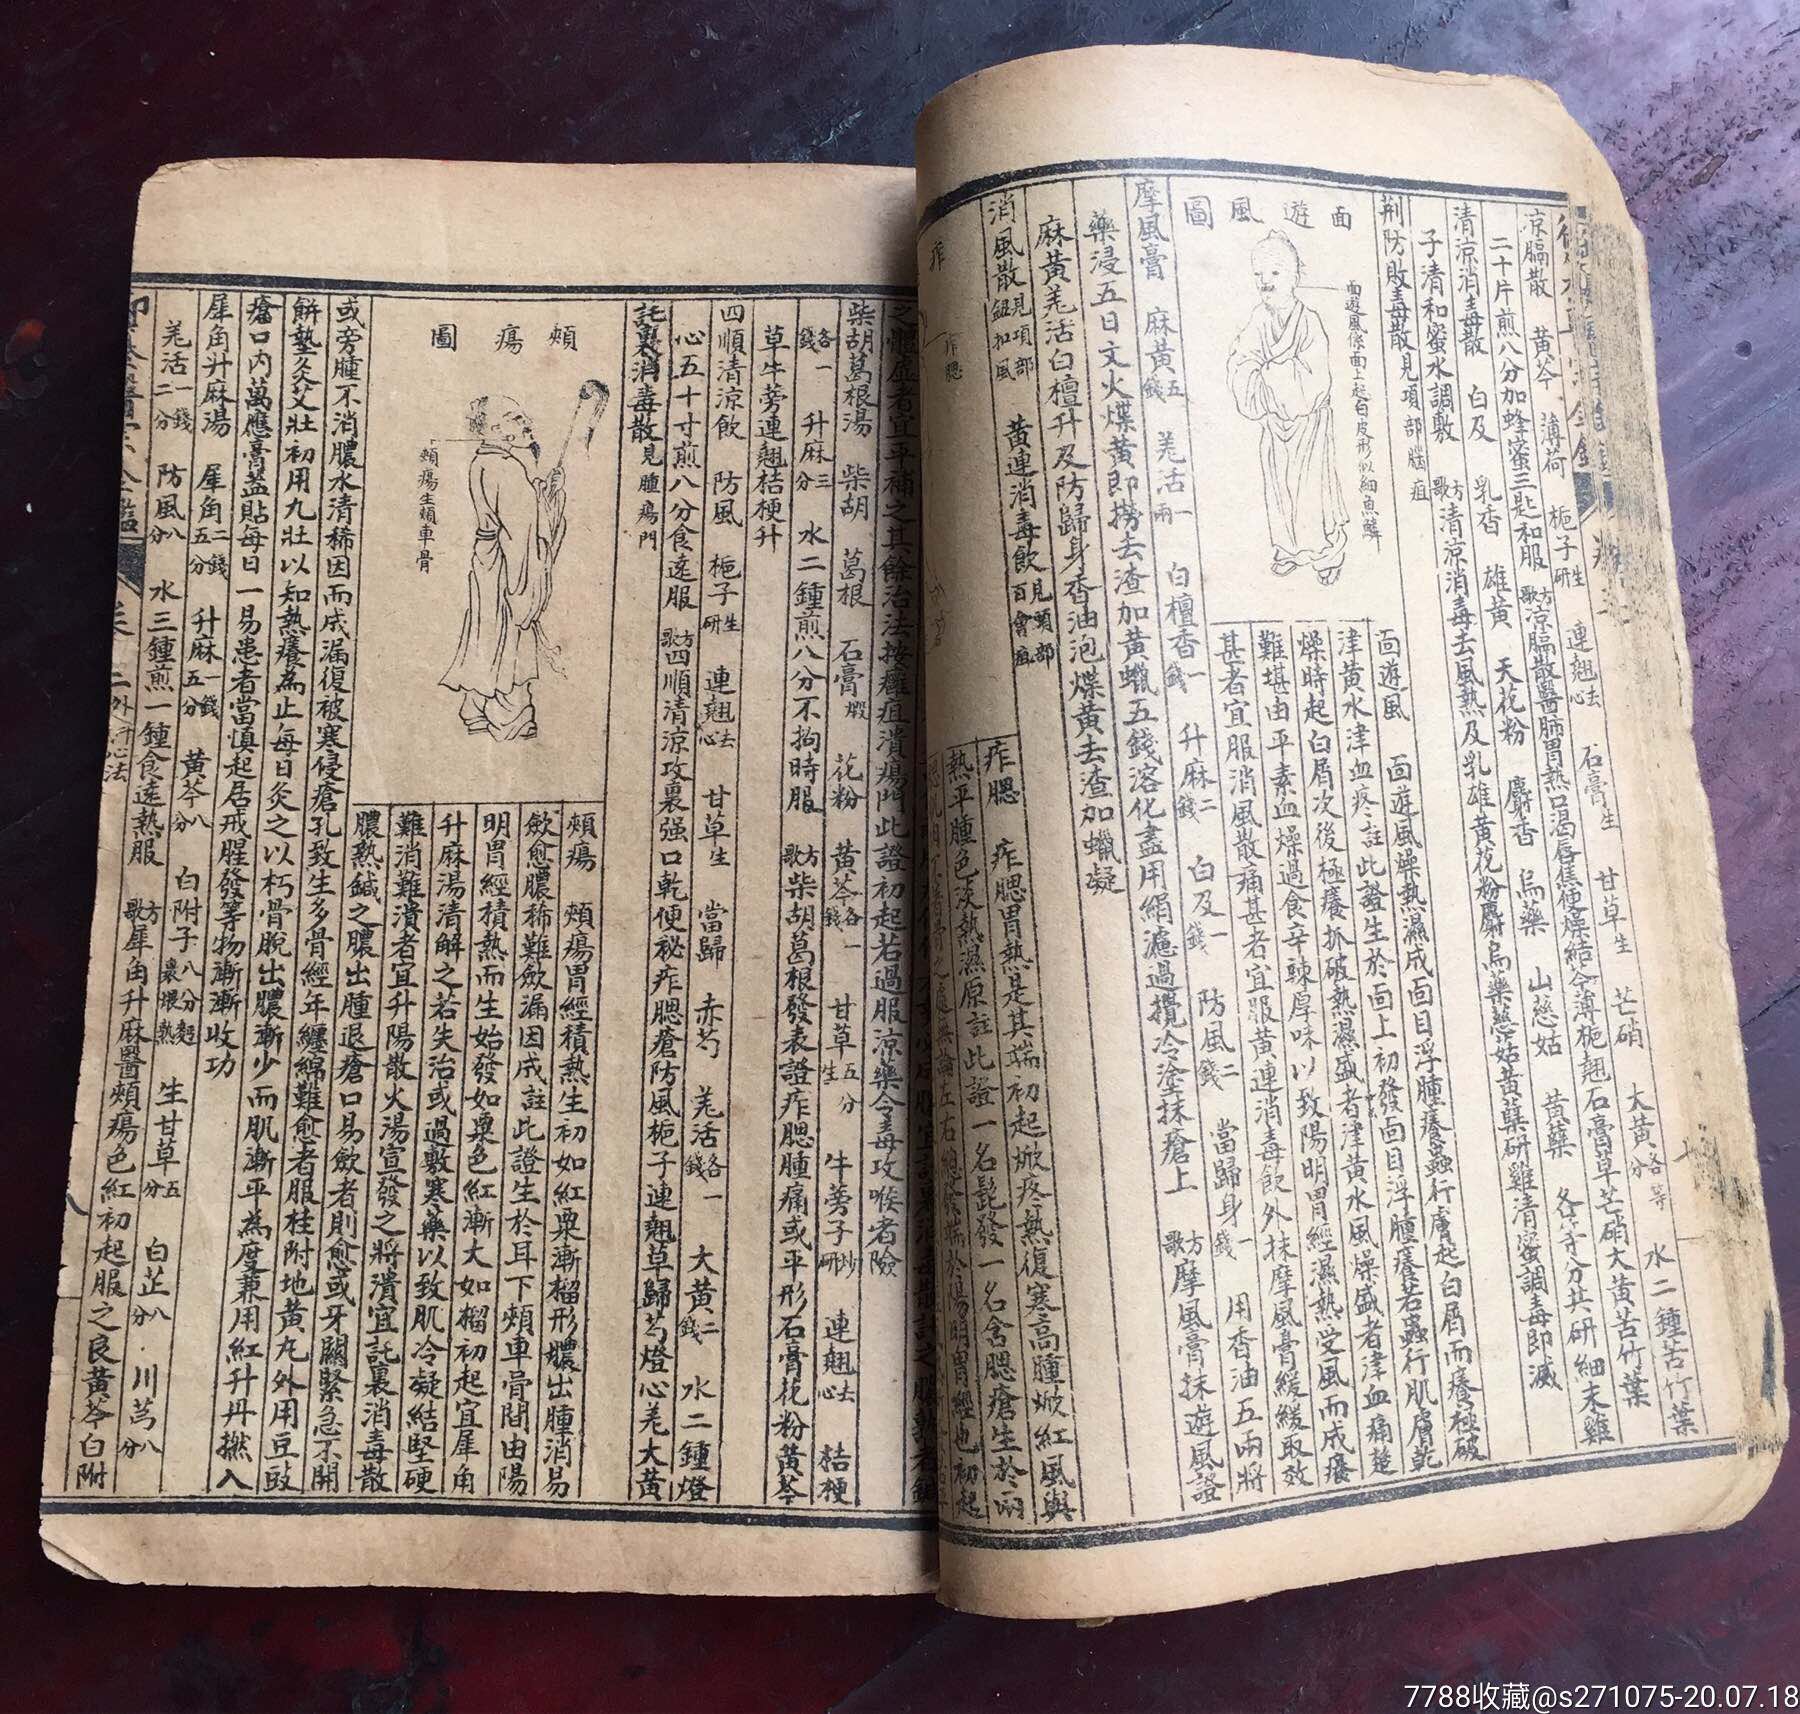 涼膈散 黃芩 薄荷 梔子生研 連翹去心 石膏生 甘草生 芒硝 大黃各等分 水二鍾苦竹葉
二十片煎八分加蜂蜜三匙和服 方歌 涼膈散醫肺胃熱口渴唇焦便燥結芩薄梔翹石膏草芒硝大黃苦竹葉
清涼消毒散 白及 乳香 雄黃 天花粉 麝香 烏藥 山慈姑 黃蘗 各等分共研細末雞
子清和蜜水調敷 方歌 清涼消毒去風熱及乳雄黃花粉麝烏藥慈姑黃蘗研雞清蜜調毒即滅
荊防敗毒散見項部腦疽
面遊風圖
面遊風像面上起白皮形似細魚鱗
面遊風 面遊風燥熱濕成面目浮腫癢蟲行膚起白屑而癢極破
津黃水津血疼註此證生於面上初發面目浮腫癢若蟲行肌膚乾
燥時起白屑次後極癢抓破熱濕盛者津黃水風燥盛者津血痛楚
難堪由平素血燥過食辛辣厚味以致陽明胃經濕熱受風而成癢
甚者宜服消風散痛甚者宜服黃連消毒飲外抹摩風膏緩緩取效
摩風膏 麻黃五錢 羌活一兩 白檀香一錢 升麻二錢 白及一錢 防風二錢 當歸身一錢 用香油五兩將
藥浸五日文火煠黃即撈去渣加黃蠟五錢溶化盡用絹濾過攪冷塗抹瘡上 方歌 摩風膏抹遊風證
麻黃羌活白檀升及防歸身香油泡煠黃去渣加蠟凝
消風散見項部鈕扣風 黃連消毒飲見頭部百會疽
痄腮 痄腮胃熱是其端初起焮疼熱復寒高腫焮紅風與
熱平腫色淡熱濕原註此證一名髭發一名含腮瘡生於兩
之體虛者宜平補之其餘治法按癰疽潰瘍門此證初起若過服涼藥令毒攻喉者險
柴胡葛根湯 柴胡 葛根 石膏煅 花粉 黃芩各一錢 甘草五分生 牛蒡子炒研 連翹去心 桔梗
各一錢 升麻三分 水二鍾煎八分不拘時服 方歌 柴胡葛根發表證痄腮腫痛或平形石膏花粉黃芩
草牛蒡連翹桔梗升
四順清涼飲 防風 梔子生研 連翹去心 甘草生 當歸 赤芍 羌活各一錢 大黃二錢 水二鍾燈
心五十寸煎八分食遠服 方歌 四順清涼攻裏强口乾便秘痄腮瘡防風梔子連翹草歸芍燈心羌大黃
託裏消毒散見腫瘍門
頰瘍圖
頰瘍生頰車骨
頰瘍 頰瘍胃經積熱生初如紅粟漸榴形膿出腫消易
歛愈膿稀難歛漏因成註此證生於耳下頰車骨間由陽
明胃經積熱而生始發如粟色紅漸大如榴初起宜犀角
升麻湯清解之若失治或過敷寒藥以致肌冷凝結堅硬
難消難潰者宜升陽散火湯宣發之將潰宜託裏消毒散
膿熟鍼之膿出腫退瘡口易歛者則愈或牙關緊急不開
或旁腫不消膿水清稀因而成漏復被寒侵瘡孔致生多骨經年纏綿難愈者服桂附地黃丸外用豆豉
餅墊灸艾壯初用九壯以知熱癢為止每日灸之以朽骨脫出膿漸少而肌漸平為度兼用紅升丹撚入
瘡口內萬應膏蓋貼每日一易患者當慎起居戒腥發等物漸漸收功
犀角升麻湯 犀角二錢五分 升麻一錢五分 黃芩八分 白附子八分麵裹煨熟 生甘草五分 白芷八分 川芎八分
羌活一錢二分 防風八分 水三鍾煎一鍾食遠熱服 方歌 犀角升麻醫頰瘍色紅初起服之良黃芩白附
7788收藏@s271075-20.07.18